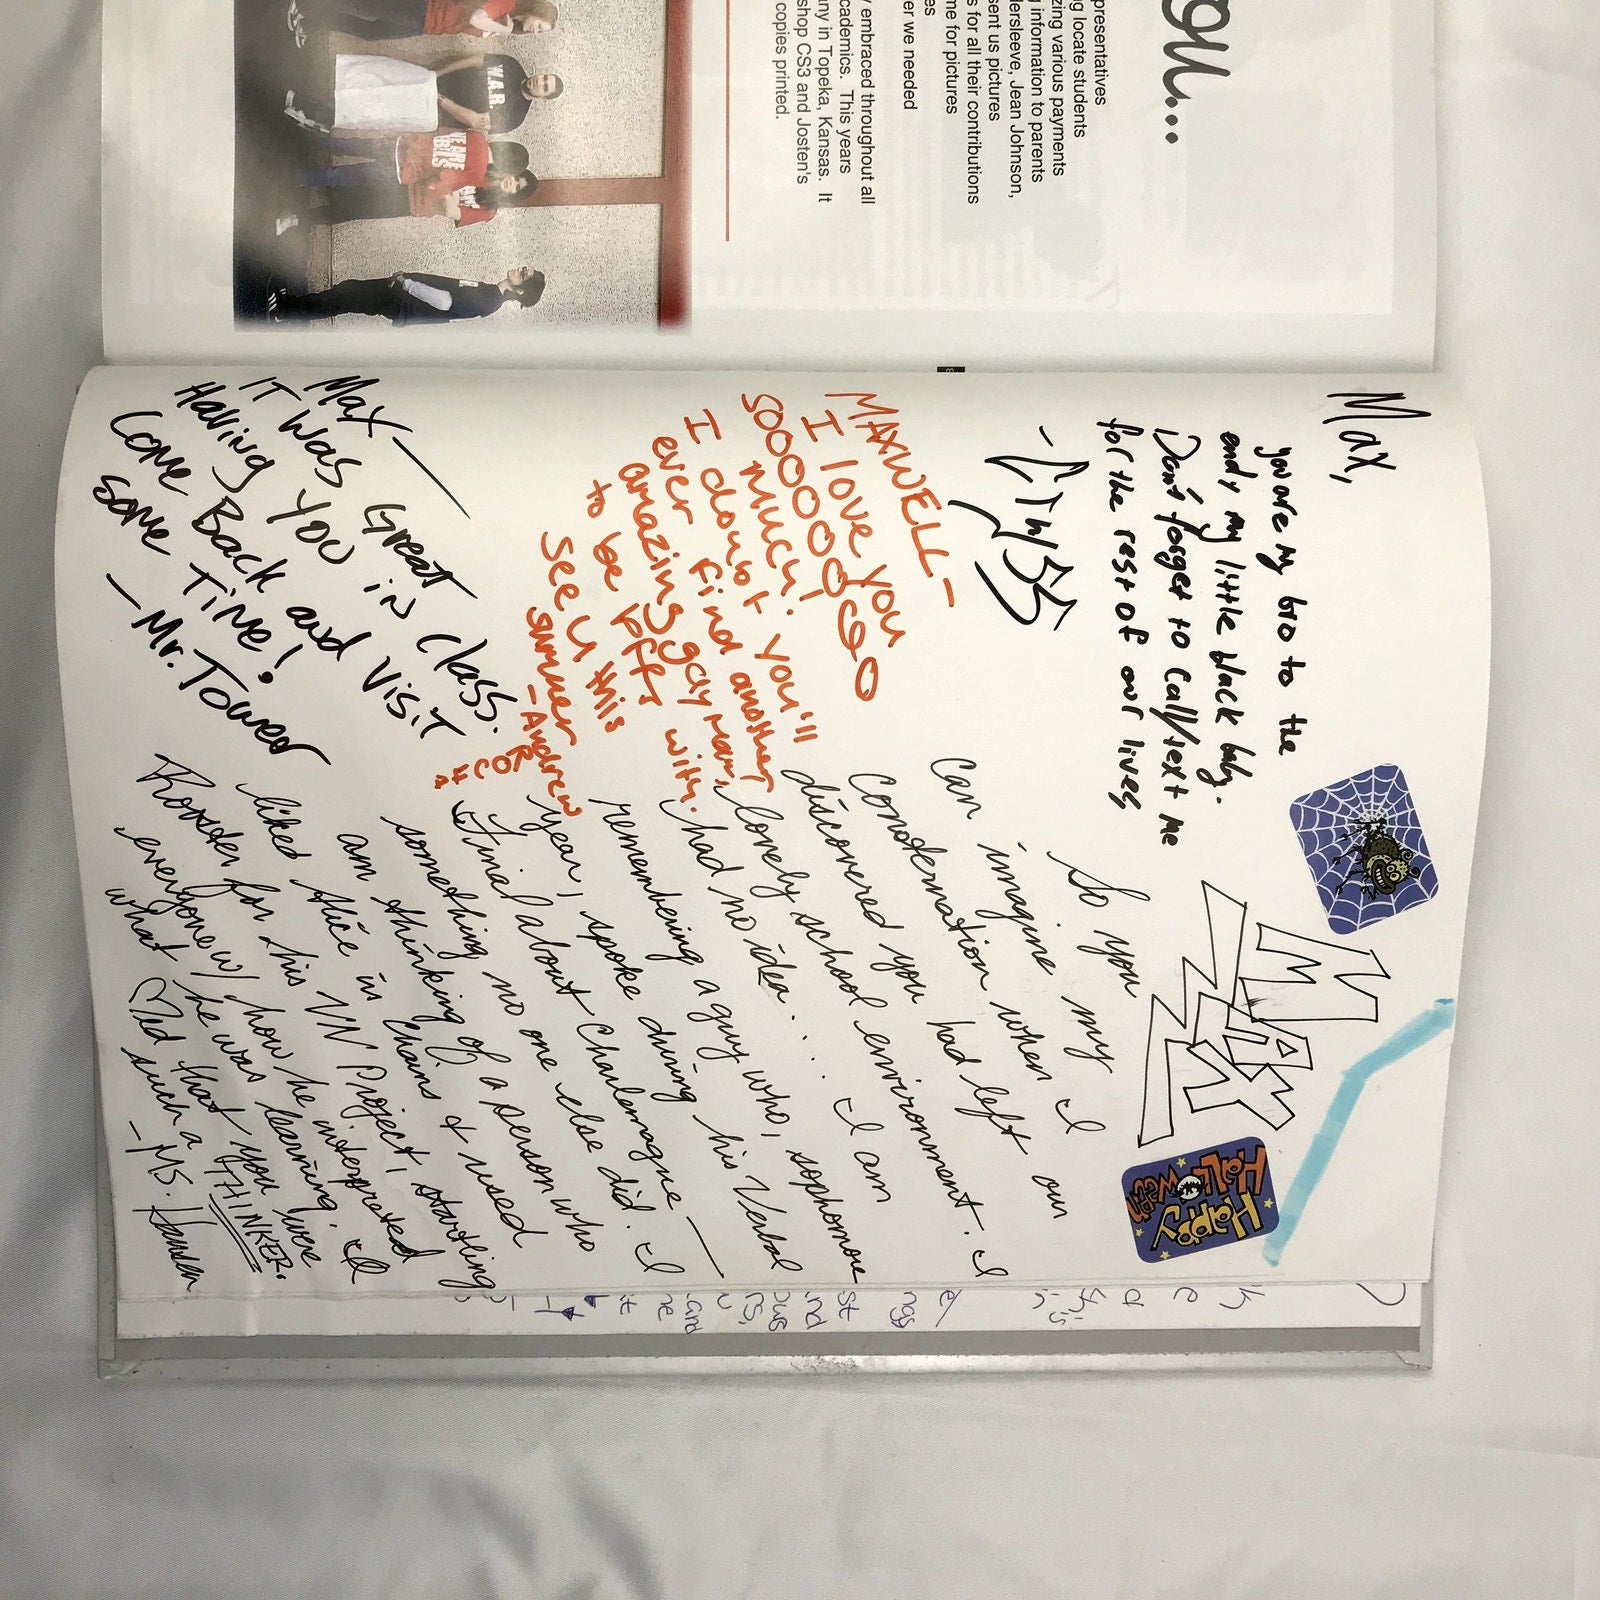 presentatives
g locate students
zing various payments
information to parents
dersleeve, Jean Johnson,
sent us pictures
s for all their contributions
me for pictures
es
er we needed
y embraced throughout all
cademics. This years
ny in Topeka, Kansas. It
shop CS3 and Josten's
copies printed.
W.A.R.
Max,
you are my bro to the
end, my little black baby.
Don't forget to call/text me
for the rest of our lives
MAXWELL-
I love you
SOOOOOOOOOO
much!
I doubt you'll
ever find another
amazing gay man,
to be bffs with.
See u this
summer
-Andrew
Max —
IT was Great
Having you in class.
Come Back and Visit
some Time!
-Mr. Tower
MAX
Happy
Halloween
So you
can imagine my
consternation when I
discovered you had left our
lovely school environment. I
had no idea.... I am
remembering a guy who, sophomore
year, spoke during his Verbal
Final about Charlemagne —
something no one else did. I
am thinking of a person who
liked Alice in Chains & used
Rooster for his VN Project, startling
everyone w/ how he interpreted
what he was learning. I
♡ed that you were
such a THINKER.
-Ms. Hansen